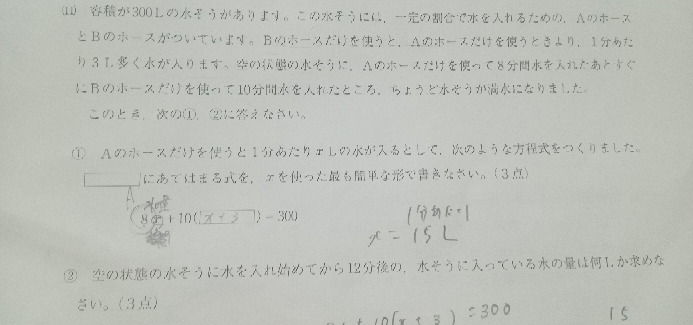 (11) 容積が300Lの水そうがあります。この水そうには、一定の割合で水を入れるための、Aのホース
とBのホースがついています。Bのホースだけを使うと、Aのホースだけを使うときより、1分あた
り3L多く水が入ります。空の状態の水そうに、Aのホースだけを使って8分間水を入れたあとすぐ
にBのホースだけを使って10分間水を入れたところ、ちょうど水そうが満水になりました。
このとき、次の①、②に答えなさい。
① Aのホースだけを使うと1分あたりxLの水が入るとして、次のような方程式をつくりました。
にあてはまる式を、xを使った最も簡単な形で書きなさい。(3点)
A
8x+10(x+3)=300
1分あたり
x=15L
② 空の状態の水そうに水を入れ始めてから12分後の、水そうに入っている水の量は何Lか求めな
さい。(3点)
10(x+3)=300
15